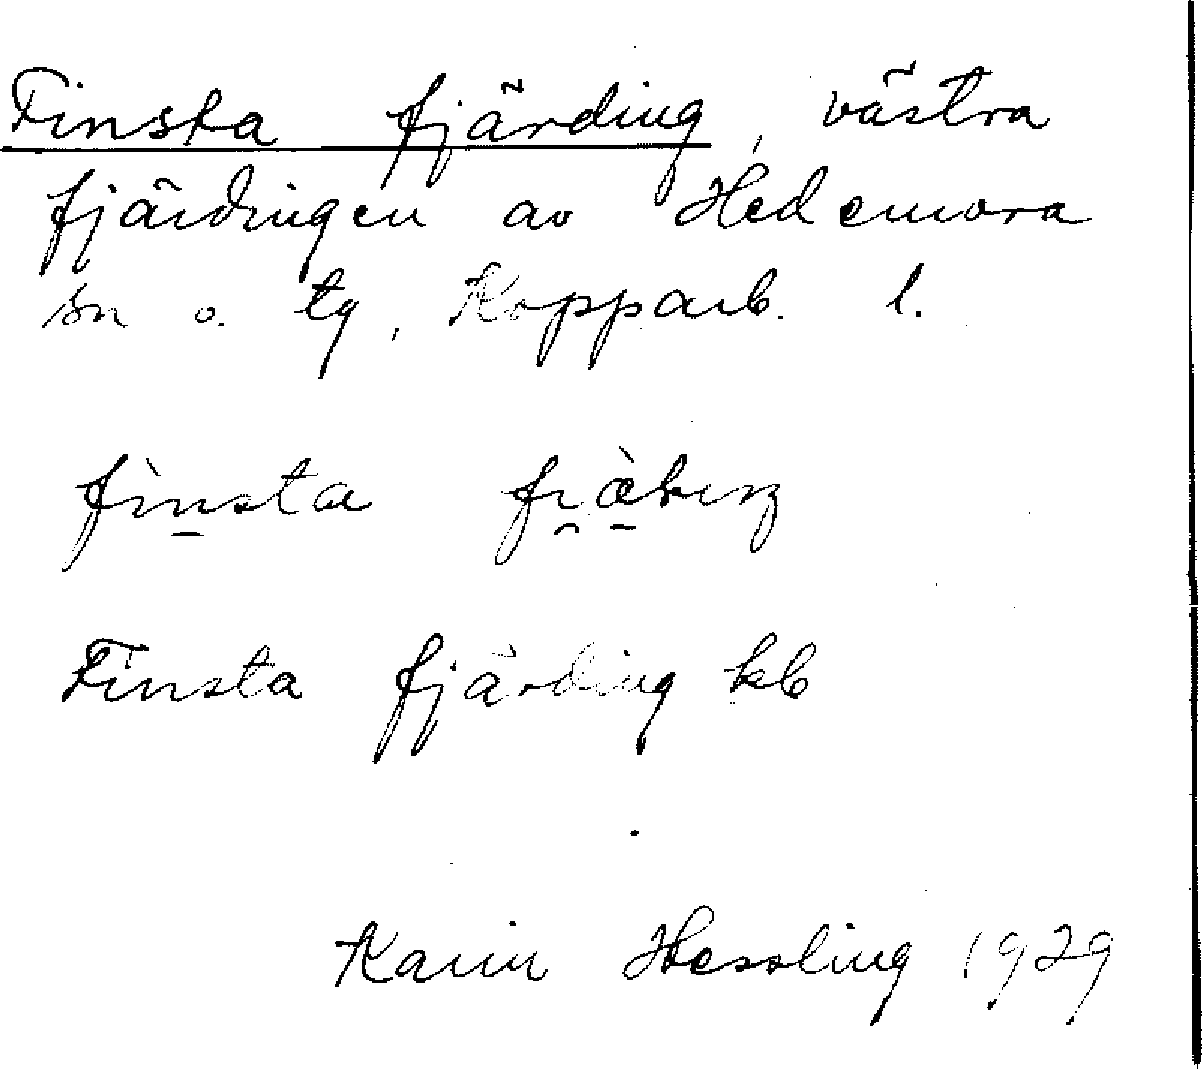 Finsta fjärding, västra
fjärdingen av Hedemora
sn o. tg, Kopparb. l.
fìnsta
Finsta fjärding kb
Karin Hessling 1929